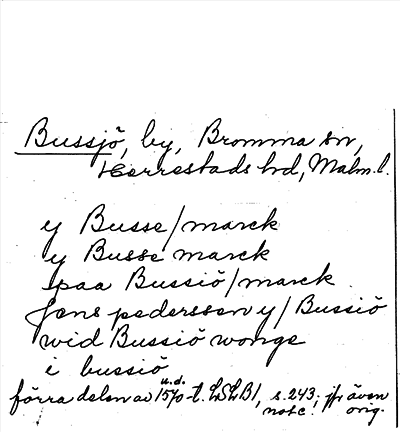 Bussjö, by, Bromma sn,
Herrestads hd, Malm. l.
y Busse/marck
y Busse marck
paa Bussiö/marck
Jens pederssen y/Bussiö
wid Bussiö wonge
i bussiö
förra delen av 1570-t. LSLB1, s. 243; jfr även
u.d.
note. orig.